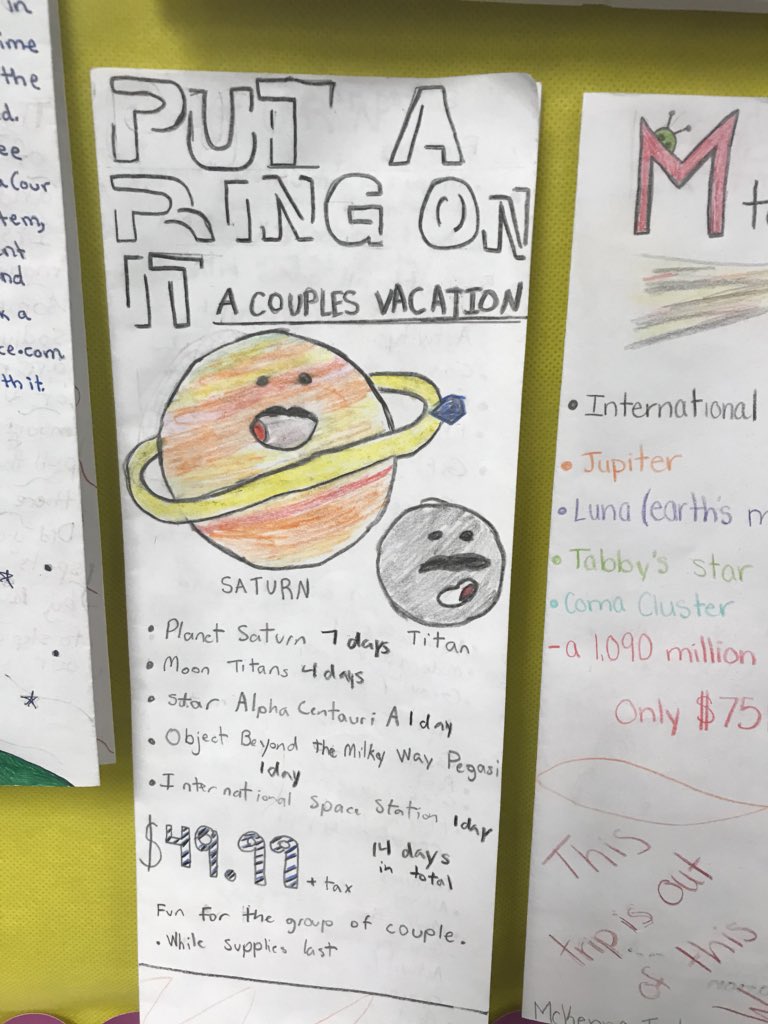 in
ime
the
d.
ee
a (our
tem,
nt
nd
k a
ce.com
th it.
PUT A
RING ON
IT A COUPLES VACATION
SATURN
Titan
• Planet Saturn 7 days
• Moon Titans 4 days
• Star Alpha Centauri A 1 day
• Object Beyond the Milky Way Pegasi
1day
• International Space Station 1day
$49.99 + tax
14 days
in total
Fun for the group of couple.
• While supplies last
M t
• International
• Jupiter
• Luna (earth's m
• Tabby's star
• Coma Cluster
- a 1,090 million
Only $75
This
trip is out
of this
W
McKenna